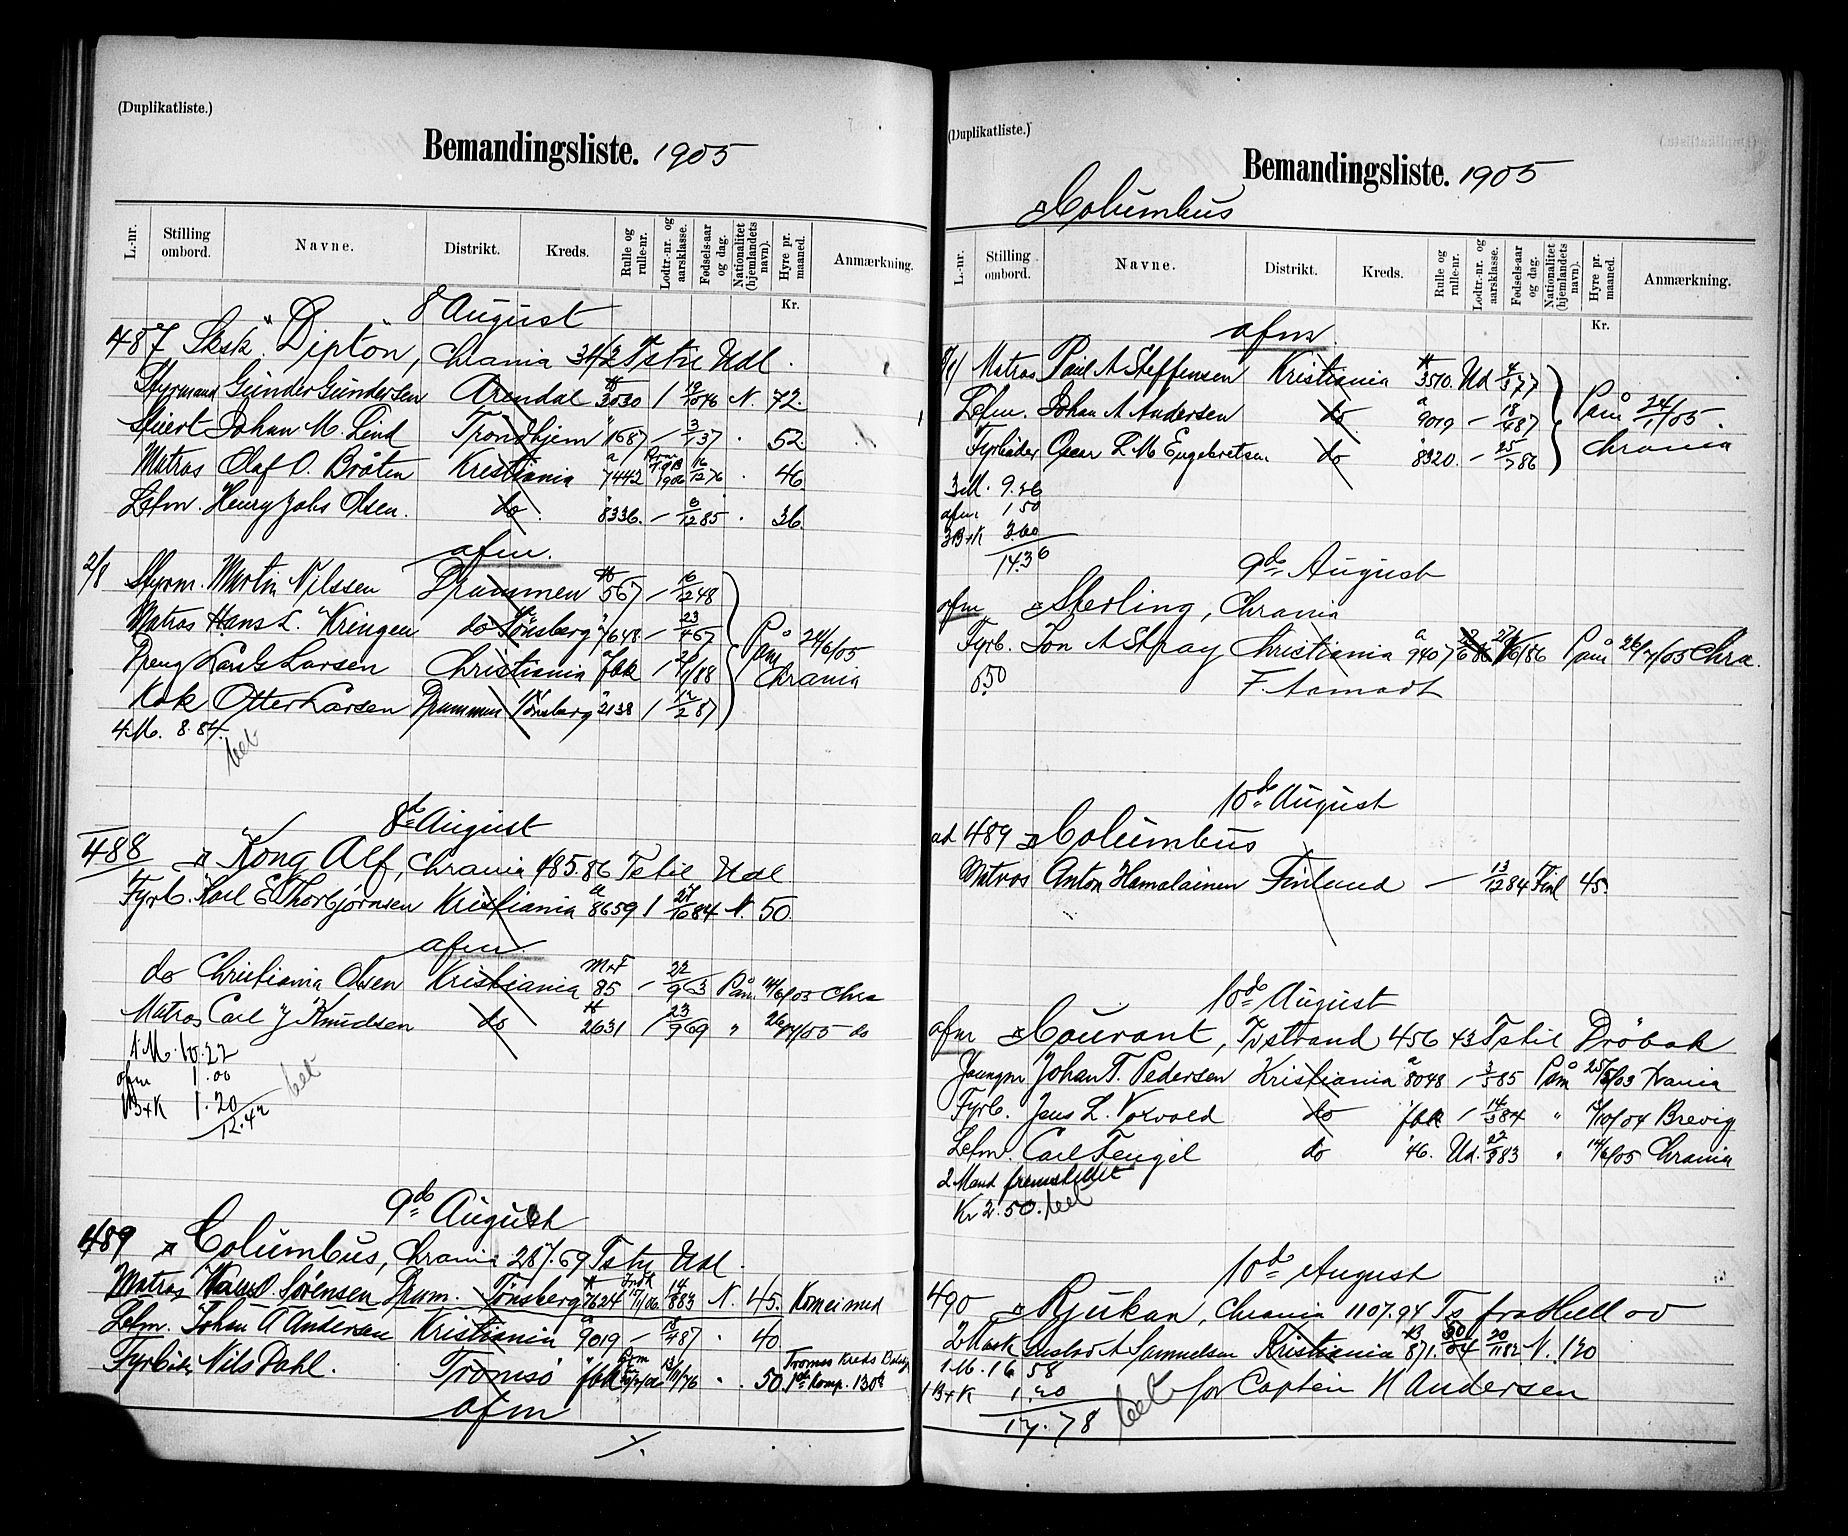 (Duplikatliste.)
Bemandingsliste. 1905
L.-nr. Stilling ombord. Navne. Distrikt. Kreds. Rulle og rulle-nr. Lodtr.-nr. og aarsklasse. Fødsels-aar og dag. Nationalitet (hjemlandets navn). Hyre pr. maaned. Anmærkning.
Kr.
8 August
487 Sksk "Dipton, Chrania 342 Ts til Udl.
Styrmand Gunder Gundersen Arendal 3030 N. 72.
Stuert Johan M. Lind Trondhjem 1687 - 3/1 37 52.
Matros Olaf O. Bråten Kristiania a 7442 16/12 76 46
Letm. Henry Johs Olsen. do. 8336. - 6/12 85 36.
afm.
2/8 Styrm. Martin Nilssen Drammen 567 - 16/12 48
Matros Hans L. Kringen do Tønsberg 7648 - 23/4 67 Påm 24/6/05
Dreng Larsen Christiania fbk Chrania
Kok Otter Larsen Drammen Tønsberg 2138 12/2 87
4 M. 8.84.
bet
8de August
488 Kong Alf, Chrania 185.86 Ts til Udl
Fyrb. Karl E Thorbjørnsen Kristiania a 8659 27/10 84 N. 50.
afm.
do Christiania Olsen Kristiania M+F 85 - 22/9 63 Påm 14/6/03 Chra
Matros Carl J Knudsen do 2631 23/9 69 " 26/7/05 do
1 M. 10.22
afm 1.00
1B+K 1.20
12.42
bet
9de August
489 Columbus, Chrania 287.69 Ts til Udl.
Matros Sørensen Dram. Tønsberg 7624 17/1/06. 14/8 83 N. 45.
Letm. Johan A Andersen Kristiania a 9019 - 18/4 87 40
Fyrbøder Nils Dahl. Tromsø fbk 50. Tromsø Kreds
afm
(Duplikatliste.)
Bemandingsliste. 1905
Columbus
L.-nr. Stilling ombord. Navne. Distrikt. Kreds. Rulle og rulle-nr. Lodtr.-nr. og aarsklasse. Fødsels-aar og dag. Nationalitet (hjemlandets navn). Hyre pr. maaned. Anmærkning.
Kr.
afm.
Matros Paul A Steffensen Kristiania 3510. Ud 77
Letm. Johan A Andersen do a 9019 - 18/4 87 Påm 24/1/05.
Fyrbøder Oscar L M Engebretsen do 8320. - 25/7 86 Chrania
3 M. 9.26
afm 1,50
3B+K 3.60
14.36
9de August
afm Sterling, Chrania
Fyrb. Jon A Stray Christiania a 9407 Påm 26/7/05 Chra.
0.50 F. Aamodt
10de August
ad 489 Columbus
Matros Anton Hamalainen Finland - 13/12 84 Finl 45.
10de August
afm Courant, Tvstrand 456 43 Ts til Drøbak
Jungm Johan T. Pedersen Kristiania a 8048 - 3/5 85 Påm 25/5/03 Krania
Fyrb. Jens L. Voxvold do fbk 14/3 84 " 13/10/04 Brevig
Letm. Carl Fengil do 46. Ud. 22/8 83 " 14/6/05 Chrania
2 Mand fremstillet
Kr 2.50. bet
10de August
490 Rjukan, Chrania 1107.94 Ts fra Hull
2 Mask Gustav A Samuelsen Kristiania 871. 20/11 82 N. 120
1 M. 16 58
1B+K 1.20 for Captein N Andersen
17.78 bet